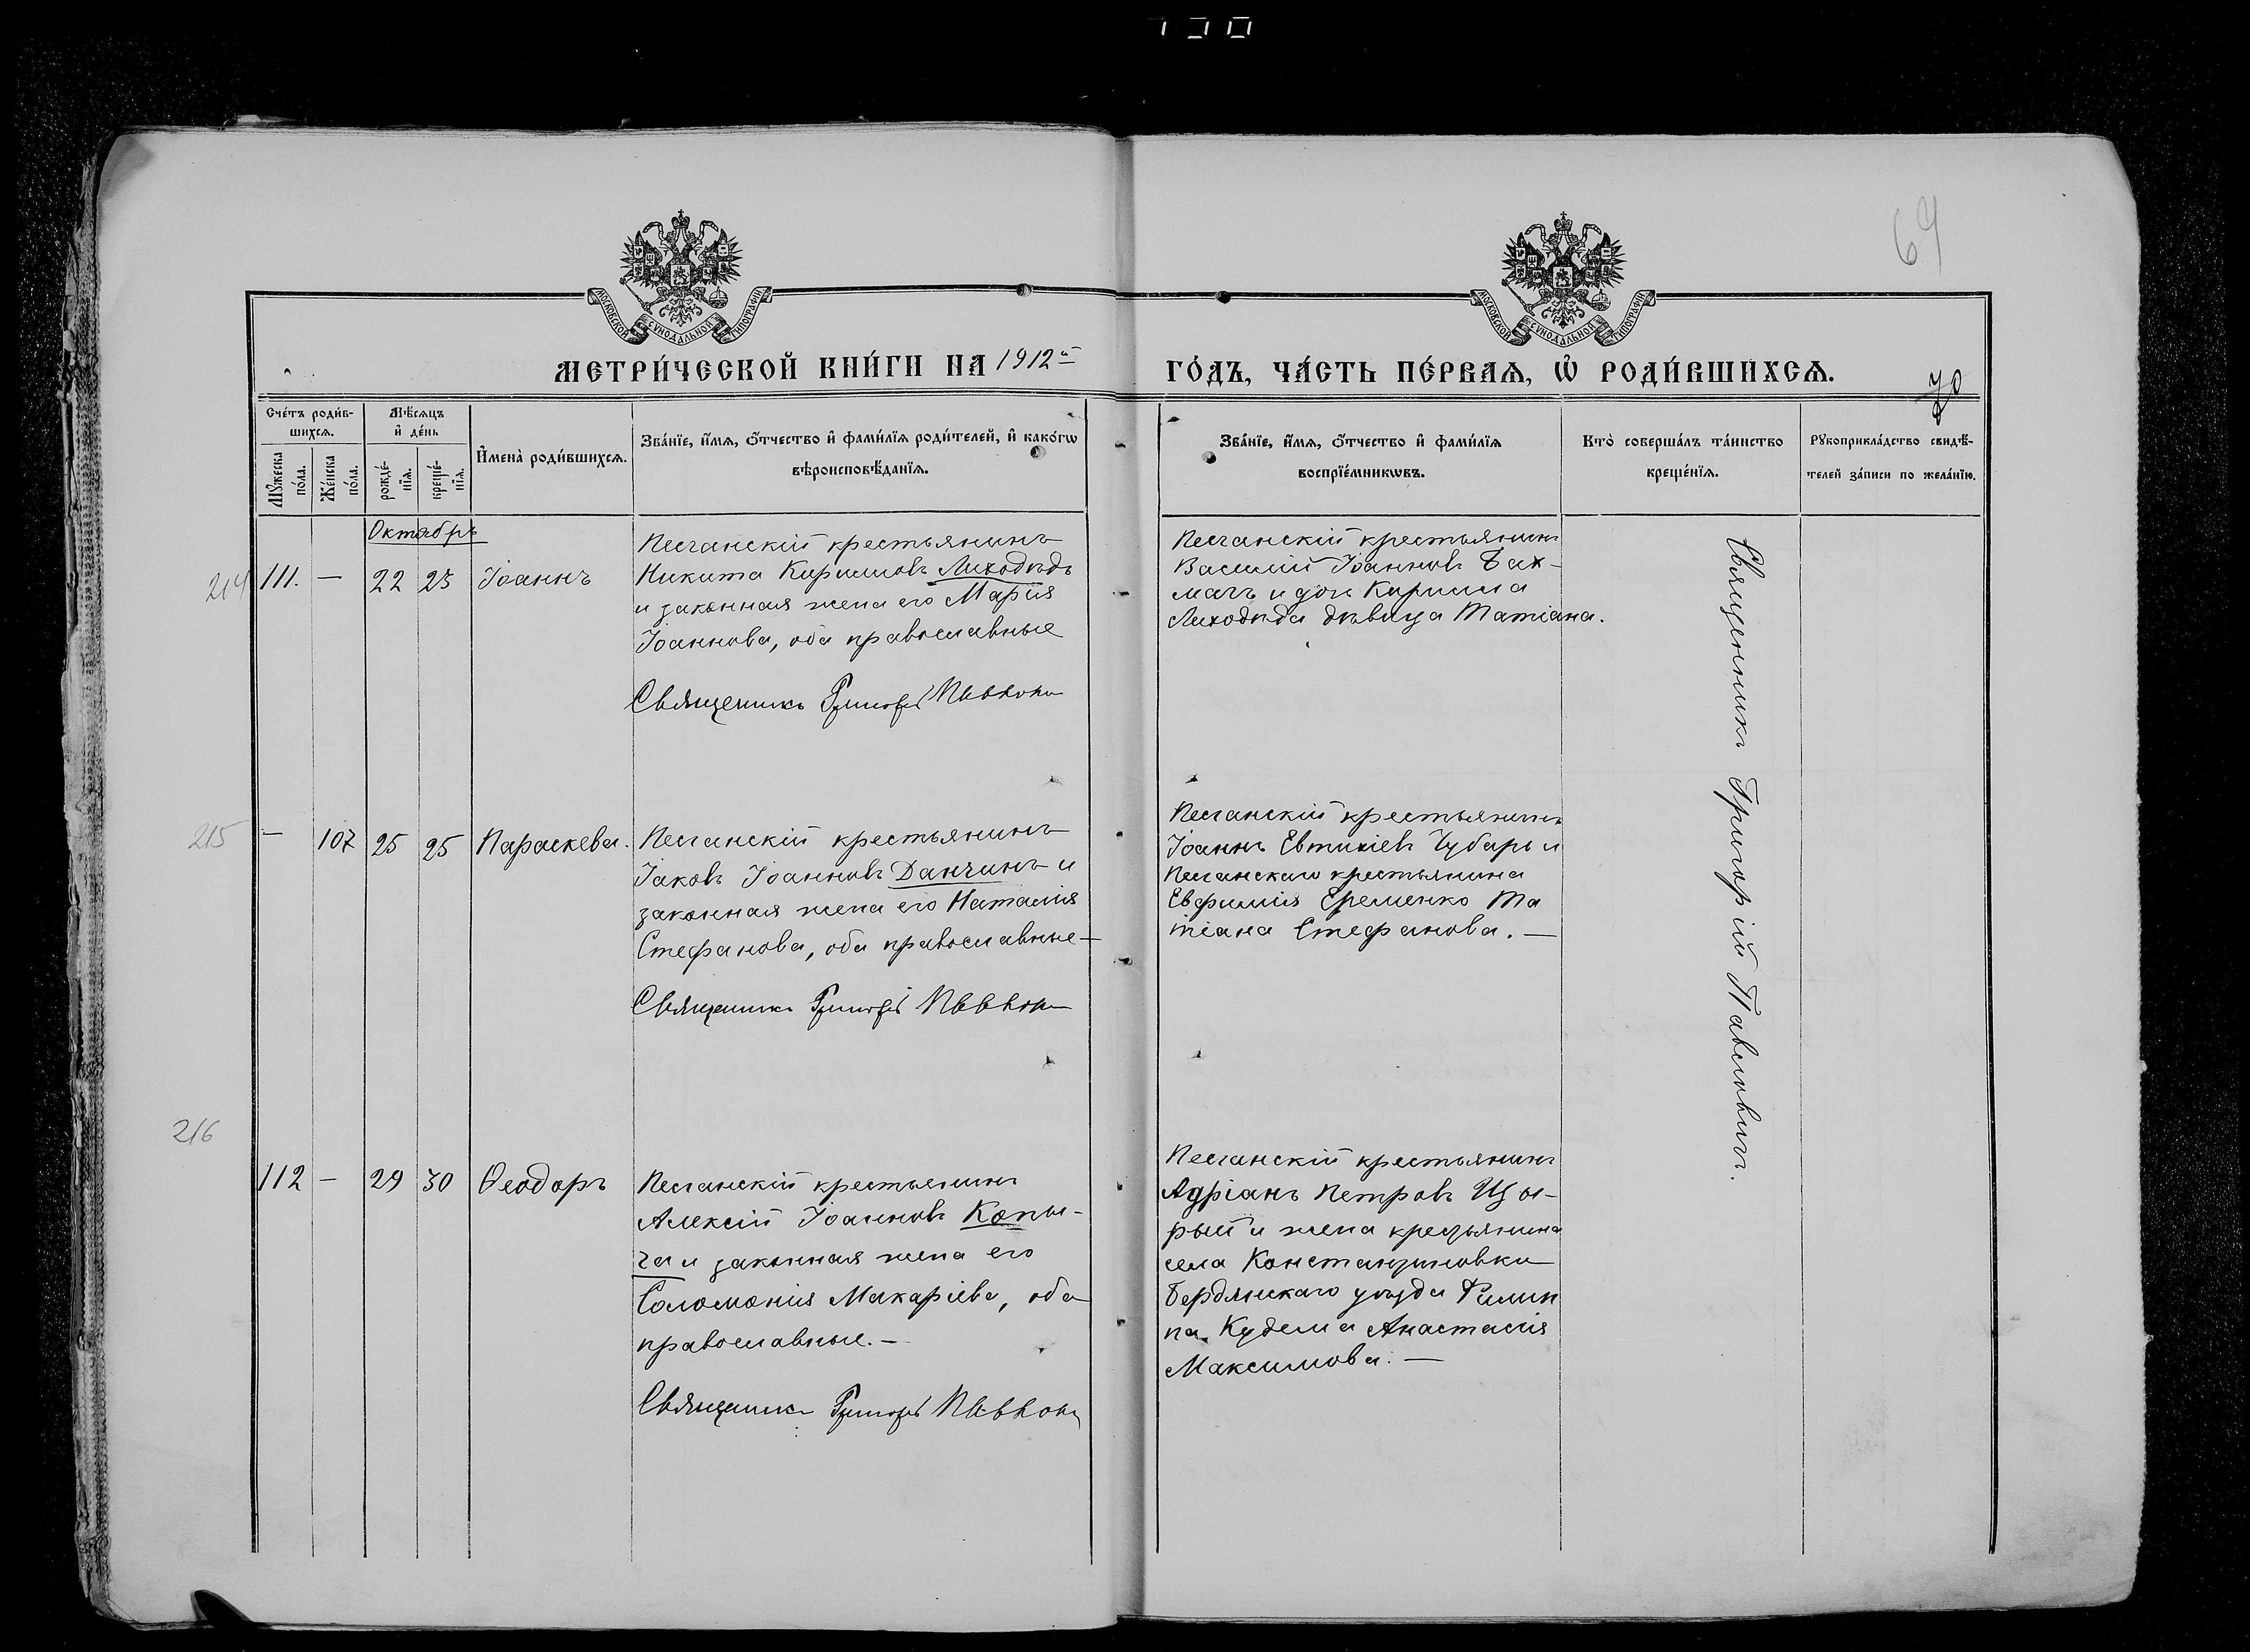 69
МОСКОВСКОЙ СѴНОДАЛЬНОЙ ТИПОГРАФІИ
МОСКОВСКОЙ СѴНОДАЛЬНОЙ ТИПОГРАФІИ
МЕТРИ́ЧЕСКОЙ КНИ́ГИ НА 1912й
ГО́ДЪ, ЧА́СТЬ ПЕ́РВАѦ, Ѡ҆ РОДИ́ВШИХСѦ.
70
Сче́тъ роди́в-
шихсѧ.
Мꙋ́жеска по́ла.
Же́нска по́ла.
Мѣ́сѧцъ
и҆ де́нь
рожде́-
нїѧ.
креще́-
нїѧ.
И҆мена̀ роди́вшихсѧ.
Зва́нїе, и҆́мѧ, ѻ҆́тчество и҆ фами́лїѧ роди́телей, и҆ како́гѡ
вѣроисповѣ́данїѧ.
Зва́нїе, и҆́мѧ, ѻ҆́тчество и҆ фами́лїѧ
воспрїе́мникѡвъ.
Кто̀ соверша́лъ та́инство
креще́нїѧ.
Рꙋкоприкла́дство свидѣ́-
телей за́писи по жела́нїю.
Октябрь
214 111. — 22 25 Іоаннъ
Песчанскій крестьянинъ
Никита Кирилловъ Лиходѣдъ
и законная жена его Марія
Іоаннова, оба православные
Священникъ Григорій
Песчанскій крестьянинъ
Василій Іоанновъ Бах-
мачъ и дочь Кирилла
Лиходѣда дѣвица Татіана.
Священникъ Григорій Павловичъ.
215 — 107 25 25 Параскева.
Песчанскій крестьянинъ
Іаковъ Іоанновъ Данчинъ и
законная жена его Наталія
Стефанова, оба православные —
Священникъ Григорій
Песчанскій крестьянинъ
Іоаннъ Евтихіевъ Чубарь и
Песчанскаго крестьянина
Евфимія Еременко Та
тіана Стефанова. —
216
112 — 29 30 Ѳеодоръ
Песчанскій крестьянинъ
Алексій Іоанновъ Копы-
ча и законная жена его
Соломонія Макаріева, оба
православные. —
Священникъ Григорій
Песчанскій крестьянинъ
Адріанъ Петровъ Щы-
рый и жена крестьянина
села Константиновки
Бердянскаго уѣзда Филип
па Кудели Анастасія
Максимова. —